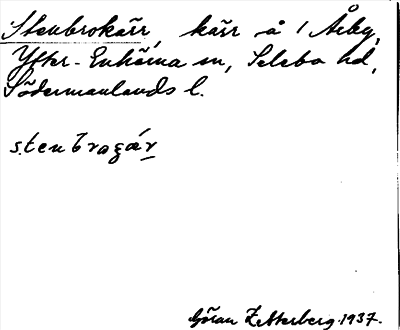 Stenbrokärr, kärr å 1 Årby,
Ytter-Enhörna sn, Selebo hd,
Södermanlands l.
stenbroɕár
Göran Zetterberg 1937.